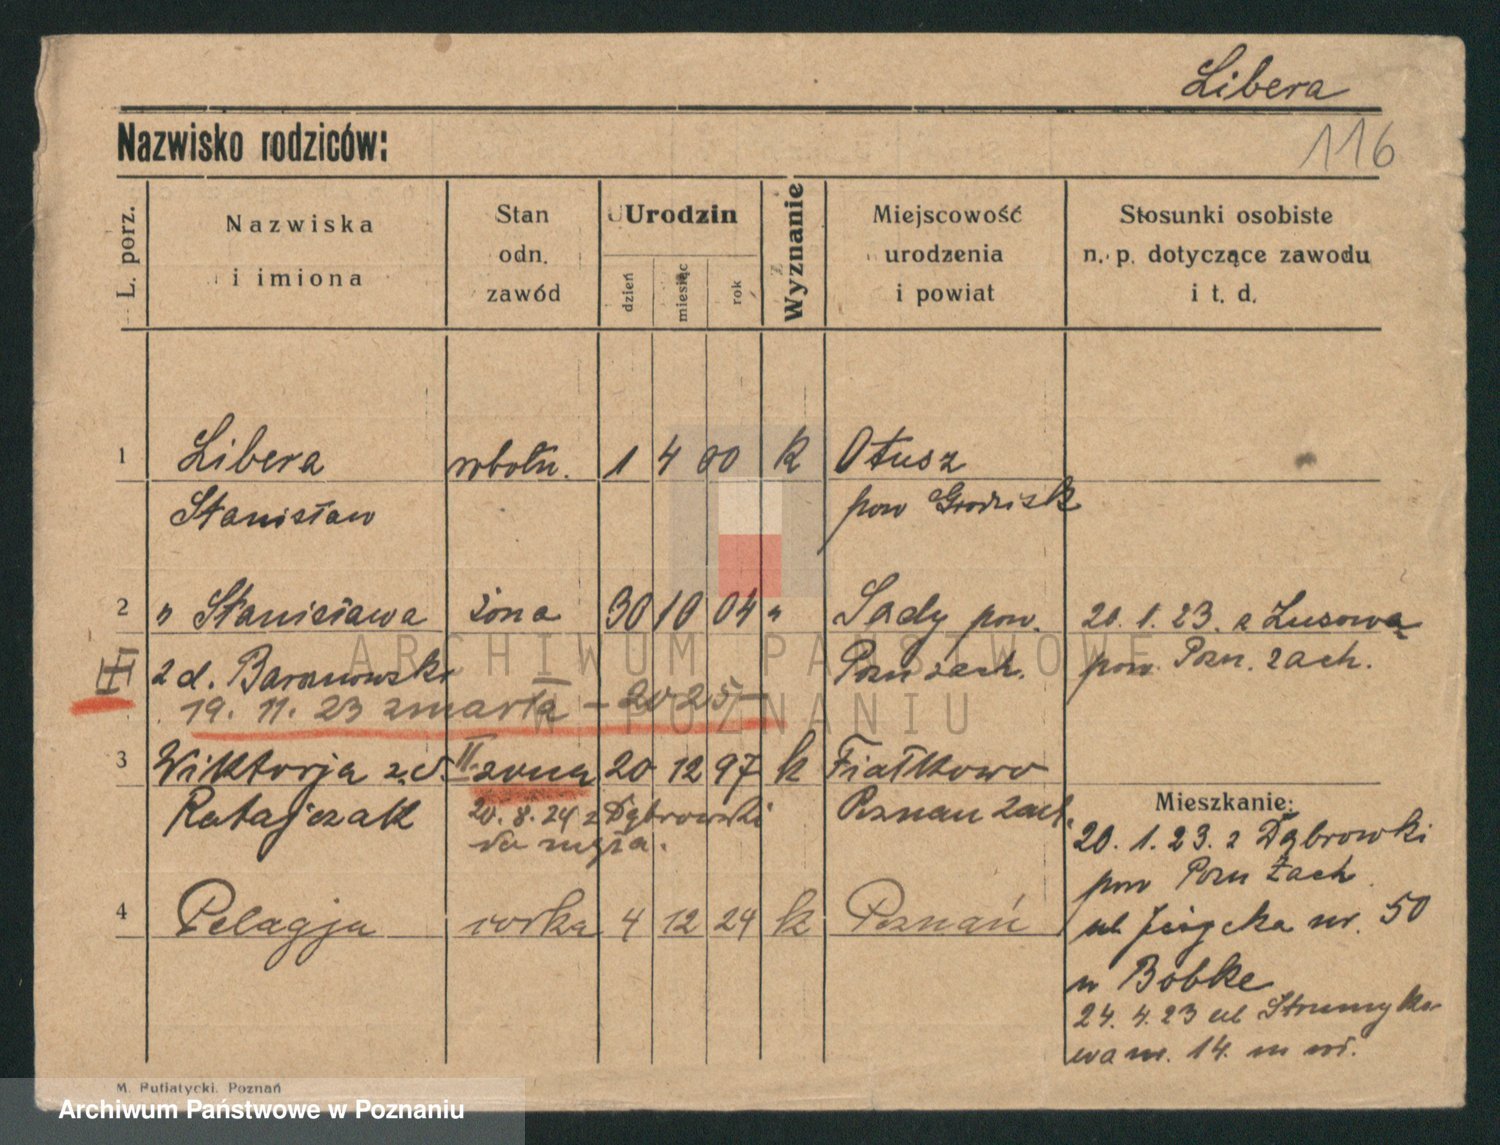 Libera
116
Nazwisko rodziców:
L. porz.
Nazwiska
i imiona
Stan
odn.
zawód
Urodzin
dzień
miesiąc
rok
Wyznanie
Miejscowość
urodzenia
i powiat
Stosunki osobiste
n. p. dotyczące zawodu
i t. d.
1 Libera robotn. 1 4 00 k Otusz
Stanisław pow Grodzisk
2 " Stanisława żona 30 10 04 " Sady pow. 20.1.23. z Lusowa
z d. Baranowska Pozn zach. pow. Pozn. zach.
19. 11. 23 zmarła
3 Wiktorja z. d. II. żona 20 12 97 k Fiałkowo
Ratajczak 20. 8. 24 z Dąbrowski Poznan zach.
do męża.
4 Pelagja córka 4 12 24 k Poznań
Mieszkanie:
20. 1. 23. z Dąbrowki
pow Pozn Zach
ul nr. 50
u Bobke
24. 4. 23 ul Strumyko
wa nr. 14. m
M. Putiatycki, Poznań
ARCHIWUM PAŃSTWOWE
W POZNANIU
Archiwum Państwowe w Poznaniu